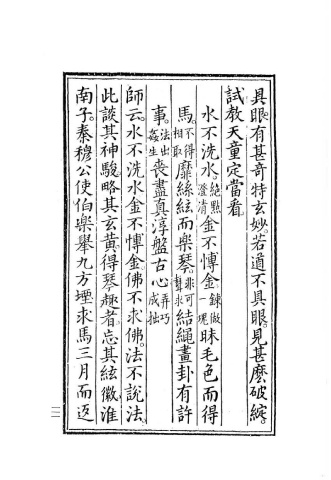 具眼。有甚奇特玄妙。若道不具眼。見甚麼破綻。
試教天童定當看。
水不洗水。絶點澄清金不愽金。鍊做一塊昧毛色而得
馬。不得相取靡絲絃而樂琴。非可聲求結繩畫卦有許
事。法出姦生喪盡真淳盤古心。弄巧成拙
師云。水不洗水。金不愽金。佛不求佛。法不說法。
此談其神駿。略其玄黃。得琴趣者。忘其絃徽。淮
南子。秦穆公使伯樂舉九方堙求馬。三月而返